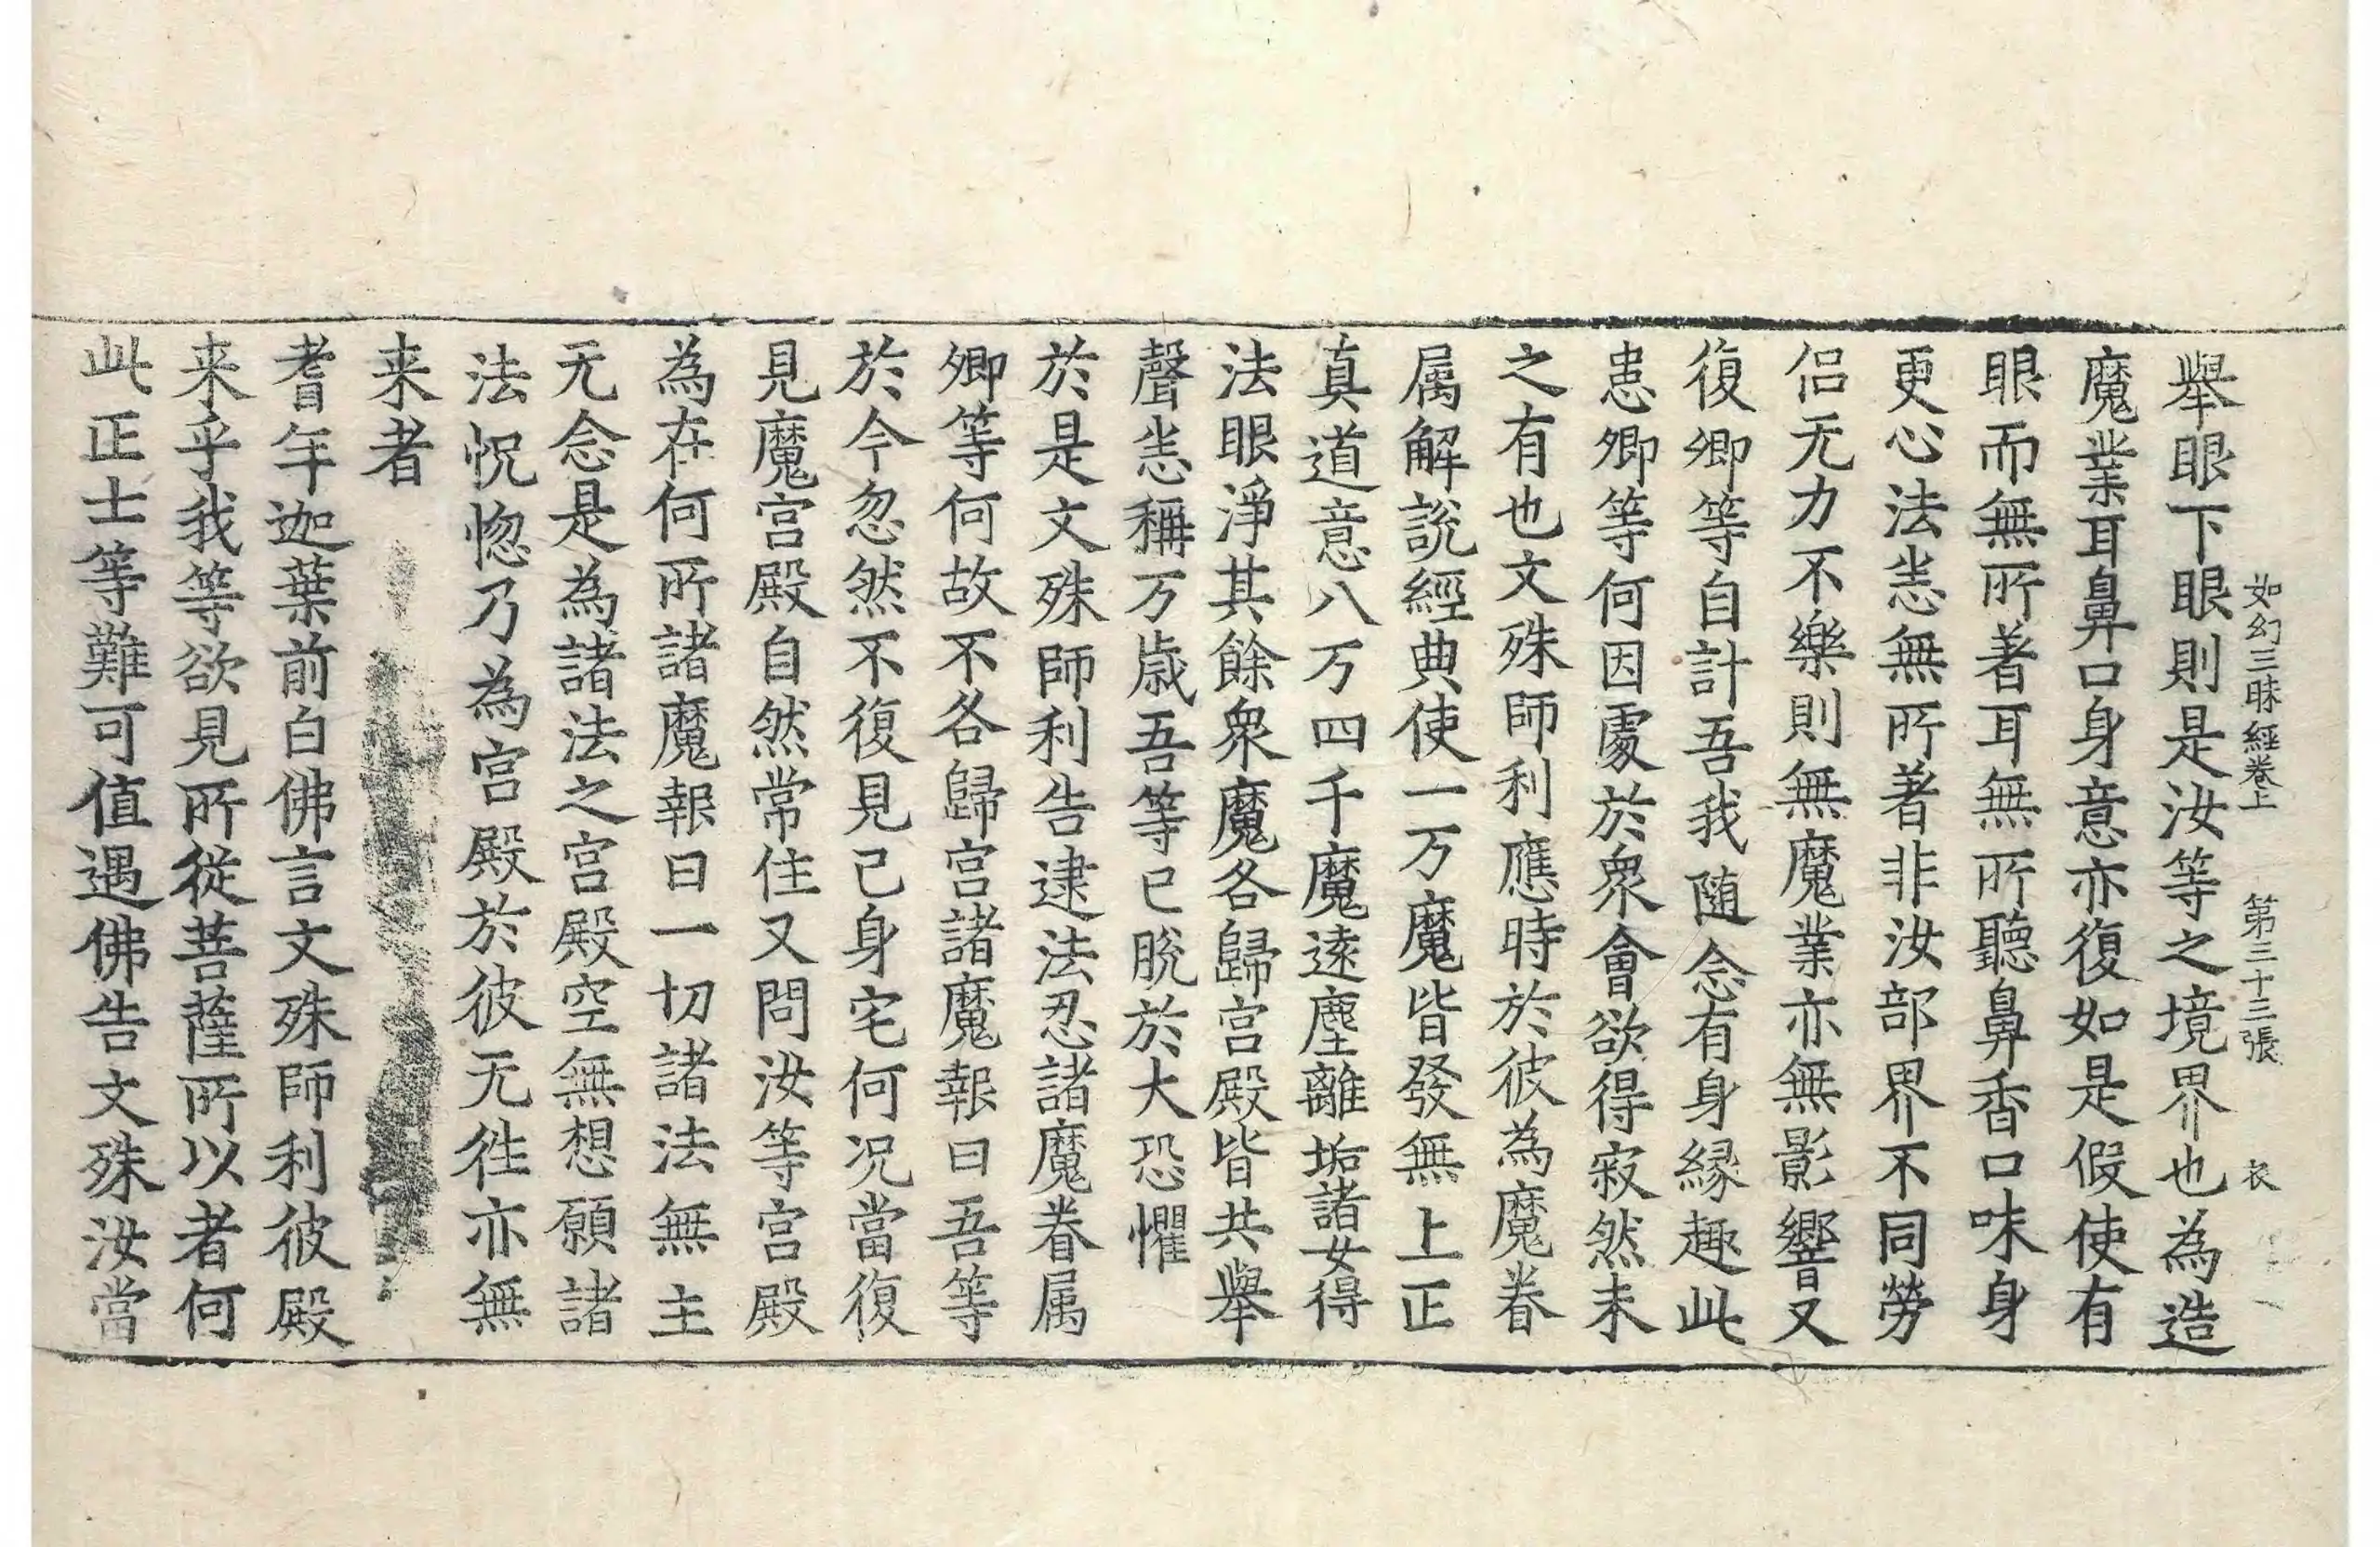 如幻三昧經卷上 第三十三張 衣
舉眼下眼則是汝等之境界也為造
魔業耳鼻口身意亦復如是假使有
眼而無所著耳無所聽鼻香口味身
更心法恙無所著非汝部界不同勞
侣无力不樂則無魔業亦無影響又
復卿等自計吾我随念有身縁趣此
恚卿等何因處於衆會欲得寂然未
之有也文殊師利應時於彼為魔眷
属解說經典使一万魔皆發無上正
真道意八万四千魔遠塵離垢諸女得
法眼淨其餘衆魔各歸宫殿皆共舉
聲恙稱万歳吾等已脫於大恐懼
於是文殊師利告逮法忍諸魔眷属
卿等何故不各歸宫諸魔報曰吾等
於今忽然不復見己身宅何况當復
見魔宫殿自然常住又問汝等宫殿
為在何所諸魔報曰一切諸法無主
无念是為諸法之宫殿空無想願諸
法怳惚乃為宫殿於彼无徃亦無
来者
耆年迦葉前白佛言文殊師利彼殿
来乎我等欲見所從菩薩所以者何
此正士等難可值遇佛告文殊汝當